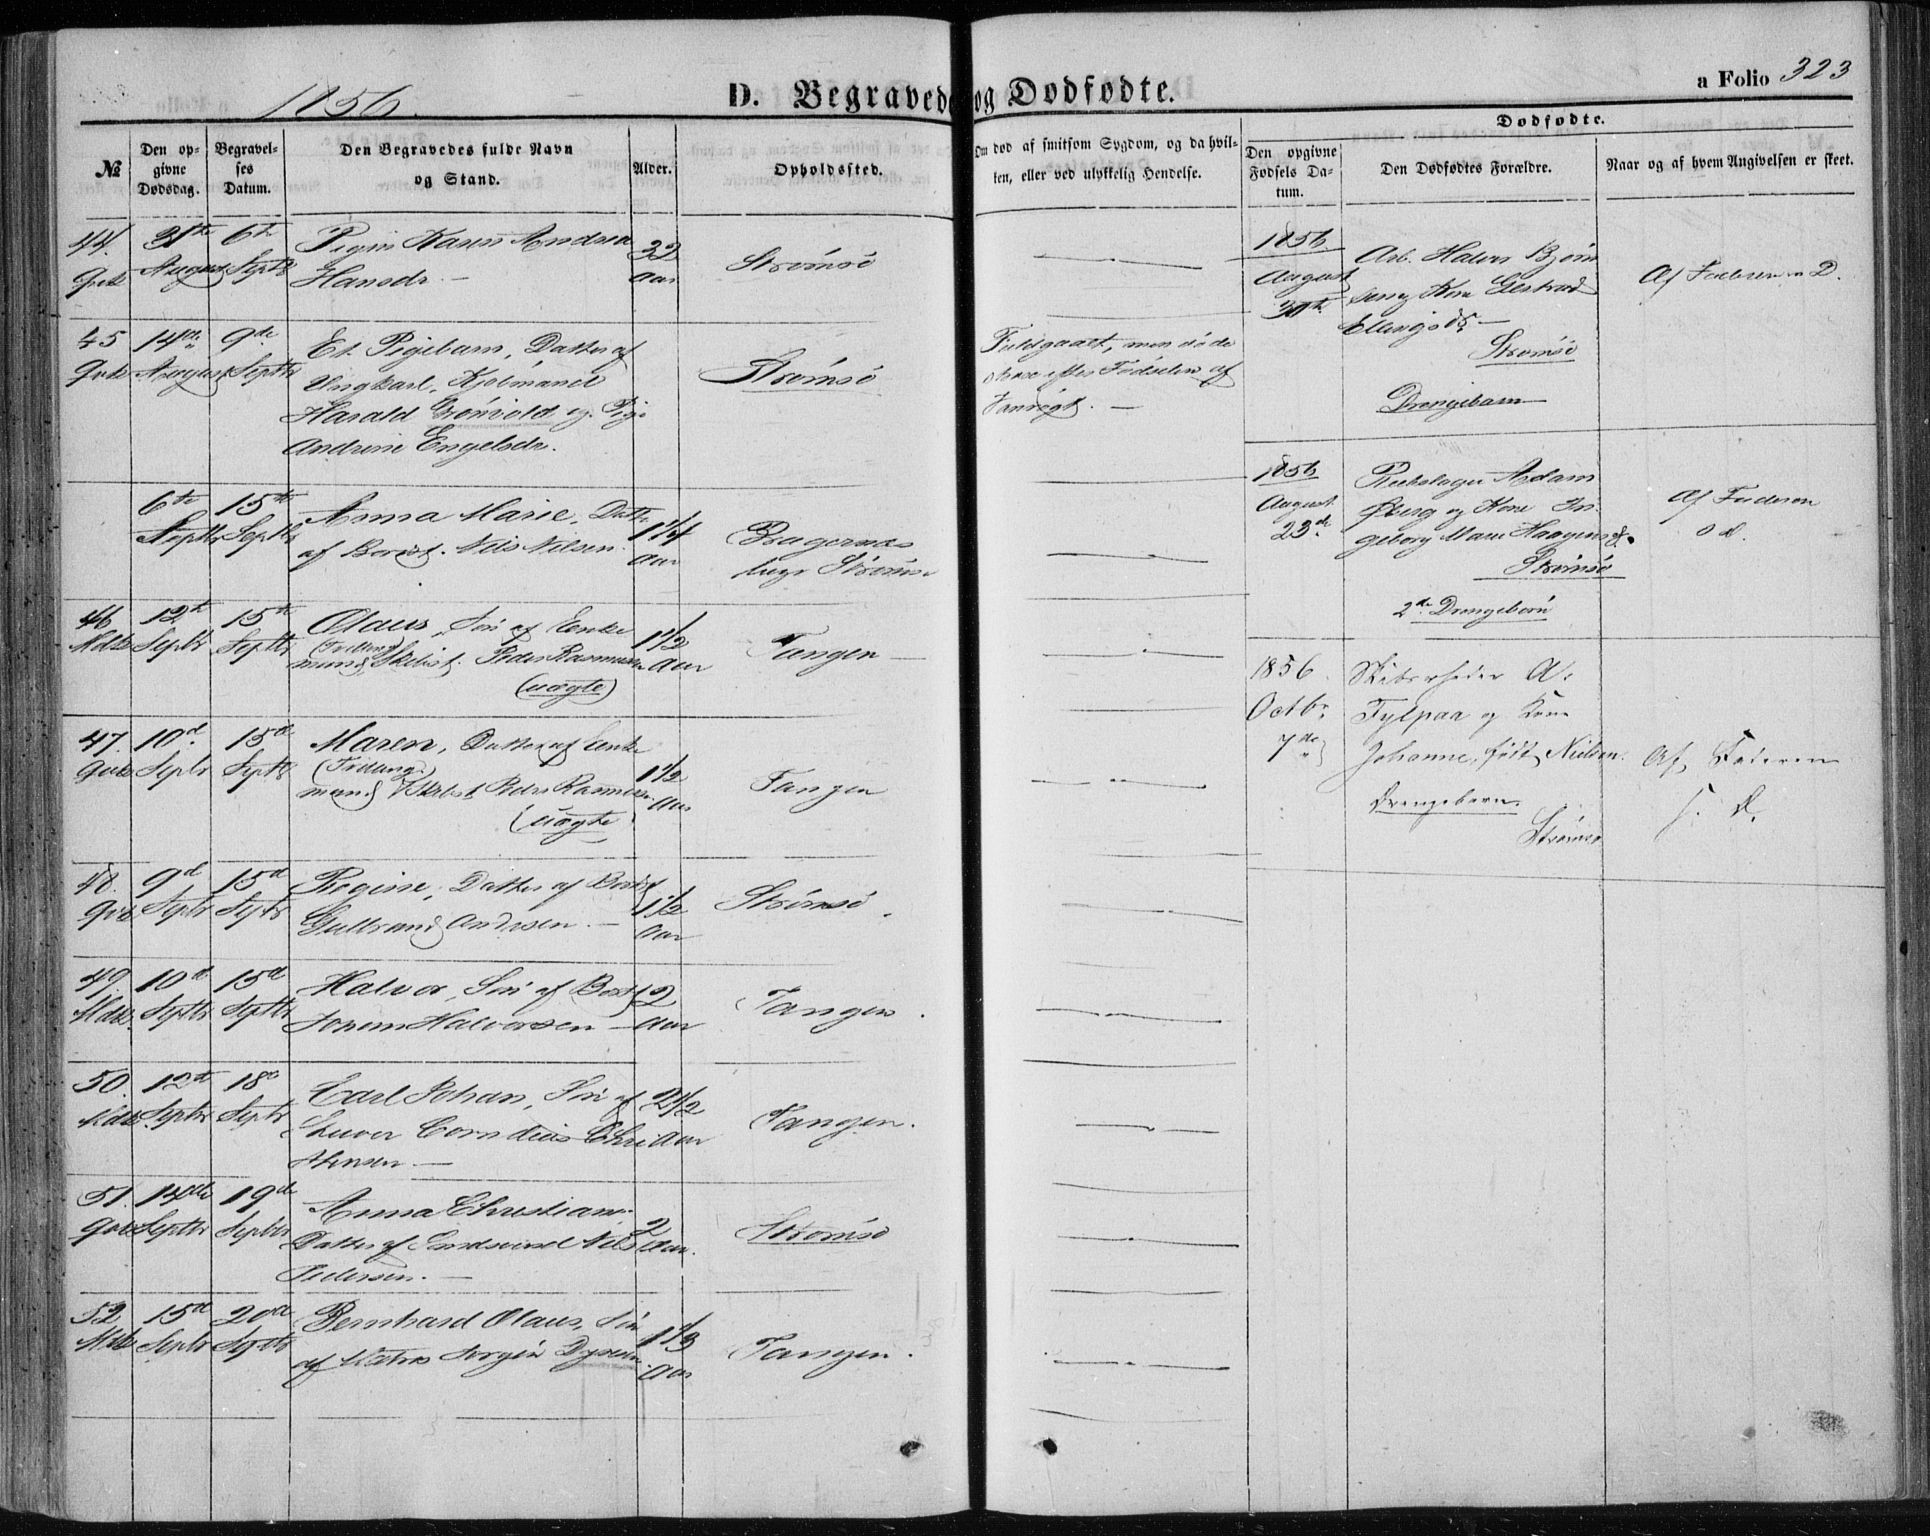 1856.
D. Begravede og Dødfødte.
a Folio 323
№
Den op-
givne
Dødsdag.
Begravel-
ses
Datum.
Den Begravedes fulde Navn
og Stand.
Alder.
Opholdssted.
Om død af smitsom Sygdom, og da hvil-
ken, eller ved ulykkelig Hendelse.
Dødfødte.
Den opgivne
Fødsels Da-
tum.
Den Dødfødtes Forældre.
Naar og af hvem Angivelsen er skeet.
44. 31te 6te Pigen Karen Andrea 32
Qvk August Septbr Hansdr. — Aar Strømsø
45 14de 9de Et Pigebarn, Datter af
Qvk August Septbr Ungkarl, Kjøbmand Strømsø
Harald Grønvold og Pige
Andrine Engelsdr.
Fuldgaaet, men døde
strax efter Fødselen af
6te 15de Anna Marie, Datter 1 1/4
Septbr Septbr af Borist. Nils Nilsen. Aar Bragernæs
Strømsø
46 12te 15de Olaus, Søn af Enke 1 1/2
Mdk Septbr Septbr mand, Skibst. Peder Rasmussen Aar Tangen
(Tvilling)
(uægte)
47. 10de 15de Maren, Datter af Enke
Qvk Septbr Septbr mand Skibst. Peder Rasmussen 1 1/2 Aar Tangen
(uægte)
48. 9de 15de Regine, Datter af Borist
Qvk Septbr Septbr Gulbrand Andersen. — 1 1/2 Aar Strømsø.
49. 10de 15de Halvor, Søn af Borist 2
Mdk. Septbr Septbr Halvorsen — Aar Tangen.
50. 12te 18de Carl Johan, Søn af 2 1/2
Mdk Septbr Septbr Cornelius Chri Aar Tangen.
stensen. —
51. 14de 19de Anna Christiane, 2
Qvk Septbr Septbr Datter af Nils Aar. Strømsø
Pedersen. —
52 15de 20de Bernhard Olaus, Søn 1 1/3
Mdk Septbr Septbr af Matros Jørgen Aar Tangen.
1856.
August
30te
Arb. Halvor Bjørn
sen og Kone Gertrud
Ellingsdr. —
Strømsø
Drengebarn
Af Faderen s. D.
1856
August
23de
Rebslager Adam
Øberg og Kone In
geborg Marie Haagensdr.
Strømsø
2de Drengebørn
Af Faderen
s d.
1856.
Octbr
7de
Skibsrheder A.
og Kone
Johanne, født Nielsen.
Drengebarn.
Strømsø
Af Faderen
s. D.